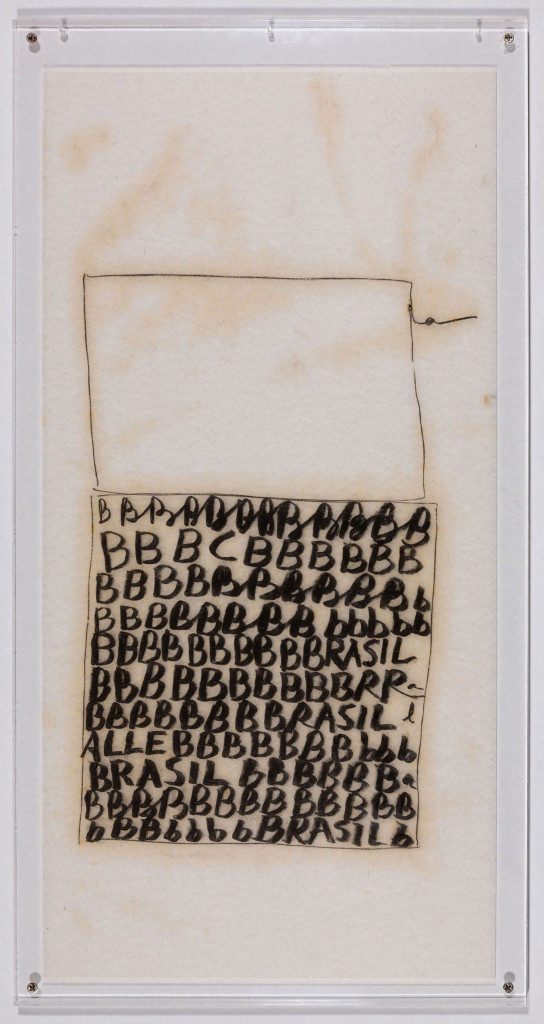 B B B B B B B B B B B B B
B B B C B B B B B B
B B B B B B B B B B B b
B B B B B B B B B b b b b b
B B B B B B B B B B BRASIL
B B B B B B B B B B B R R a
B B B B B B B B B BRASIL l
ALLE B B B B B B B b b b
BRASIL B B B B B B a
B B B B B B B B B B B B B
b B B b b b b BRASIL b